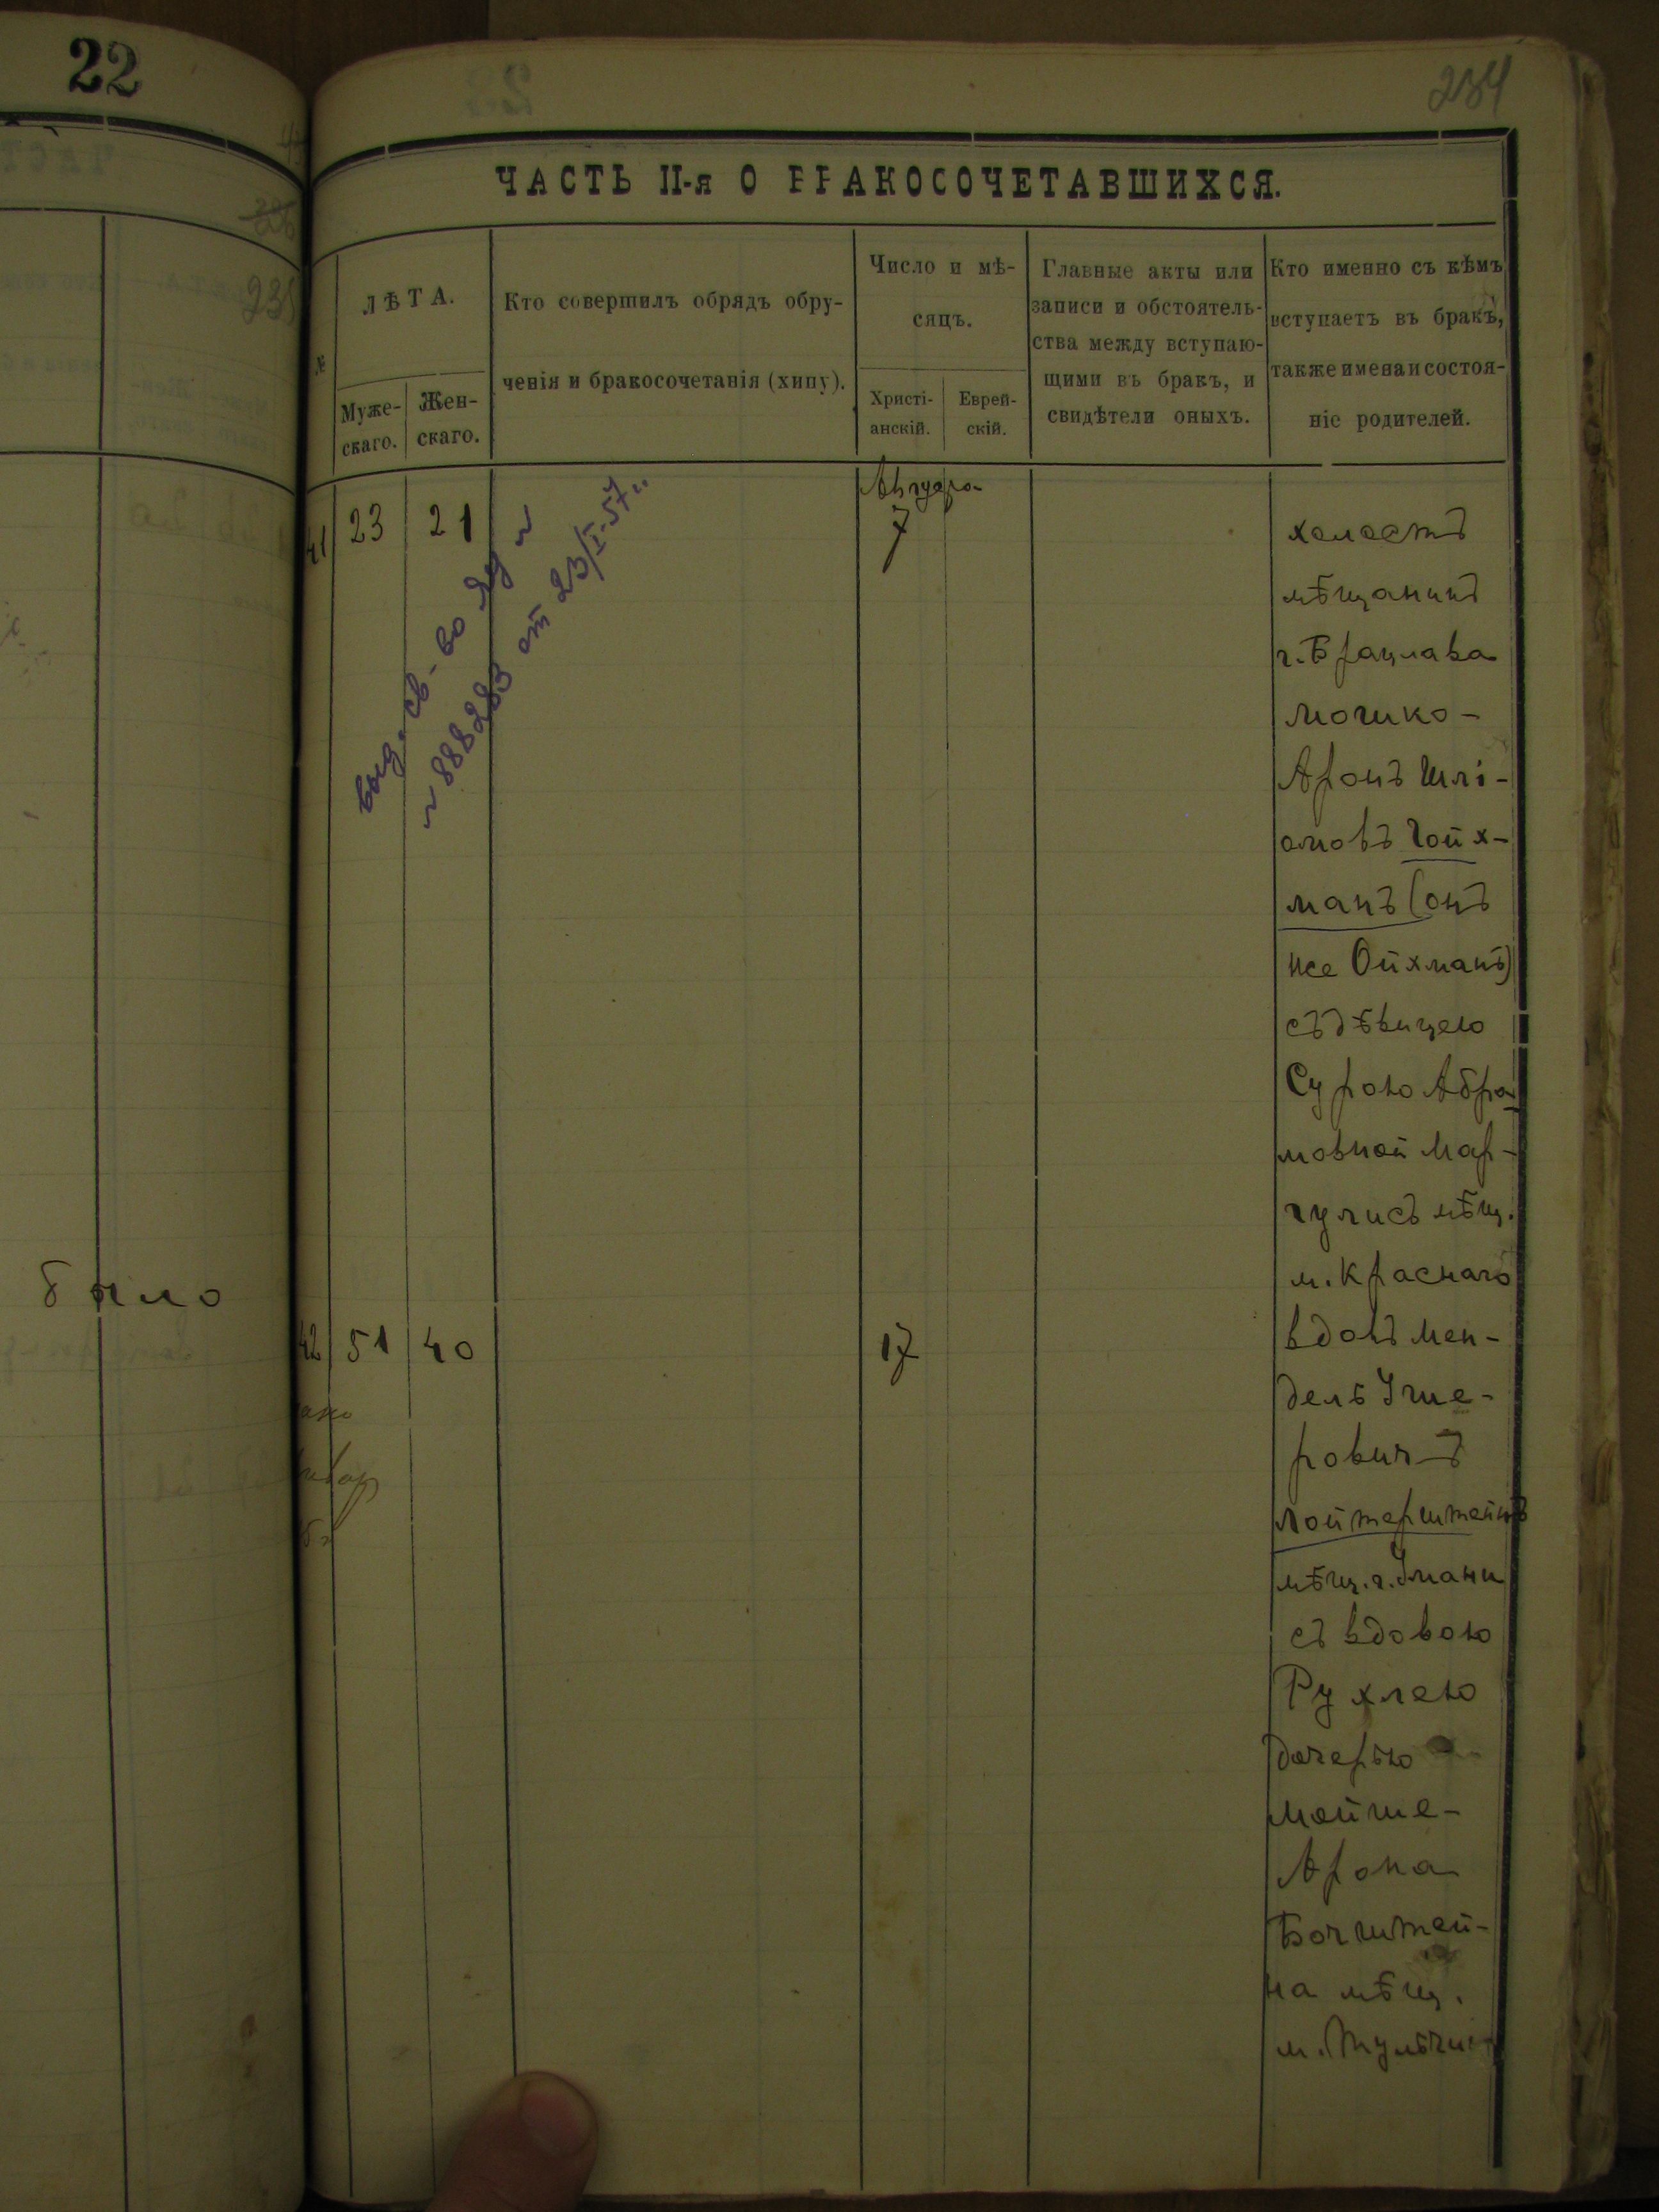 22
было
234
ЧАСТЬ II-я О БРАКОСОЧЕТАВШИХСЯ.
№
ЛѢТА.
Муже-
скаго.
Жен-
скаго.
Кто совершилъ обрядъ обру-
ченія и бракосочетанія (хипу).
Число и мѣ-
сяцъ.
Христі-
анскій.
Еврей-
скій.
Главные акты или
записи и обстоятель-
ства между вступаю-
щими въ бракъ, и
свидѣтели оныхъ.
Кто именно съ кѣмъ
вступаетъ въ бракъ,
также имена и состоя-
ніе родителей.
41
23
21
7
выд. св-во
888283 от 23/I-57 г.
холостъ
мѣщанинъ
г. Брацлава
Мошко-
Аронъ Шлі-
омовъ Гойх-
манъ (онъ
же Ойхманъ)
съ дѣвицею
Сурою Абра-
мовной Мар-
гулисъ мѣщ.
м. Краснаго
42
51
40
17
вдовъ Мен-
дель Уше-
ровичъ
Лойтерштейнъ
мѣщ. г. Умани
съ вдовою
Рухлею
дочерью
Мойше-
Арона
Боч­штей-
на мѣщ.
м. Тульчи